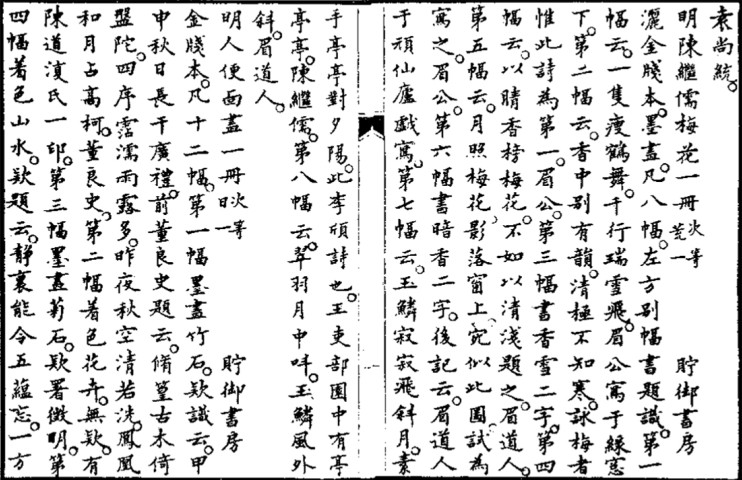 袁尚統。
明陳繼儒梅花一冊 次等 荒一 貯御書房
灑金牋本。墨畫。凡八幅。左方別幅書題識。第一
幅云。一隻瘦鶴舞。千行瑞雪飛。眉公寫于綠窓
下。第二幅云。香中別有韻。清極不知寒。詠梅者
惟此詩為第一。眉公。第三幅書香雪二字。第四
幅云。以晴香榜梅花。不如以清淺題之。眉道人。
第五幅云。月照梅花。影落窗上。宛似此圖。試為
寫之。眉公。第六幅書暗香二字。後記云。眉道人
于頑仙廬戲寫。第七幅云。玉鱗寂寂飛斜月。素
手亭亭對夕陽。此李頎詩也。王吏部園中有亭
亭亭。陳繼儒。第八幅云。翠羽月中呌。玉鱗風外
斜。眉道人。
明人便面畫一冊 次等 日一 貯御書房
金牋本。凡十二幅。第一幅墨畫竹石。款識云。甲
申秋日長干廣禮。前董良史題云。脩篁古木倚
盤陀。四序霑濡雨露多。昨夜秋空清若洗。鳳凰
和月占高柯。董良史。第二幅着色花卉。無款。有
陳道復氏一印。第三幅墨畫菊石。款署徵明。第
四幅着色山水。款題云。靜裏能令五蘊忘。一方